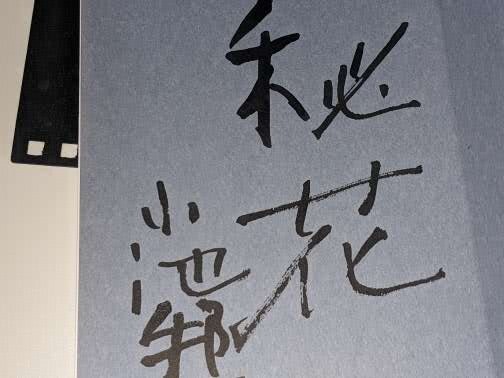 秘花
小池邦